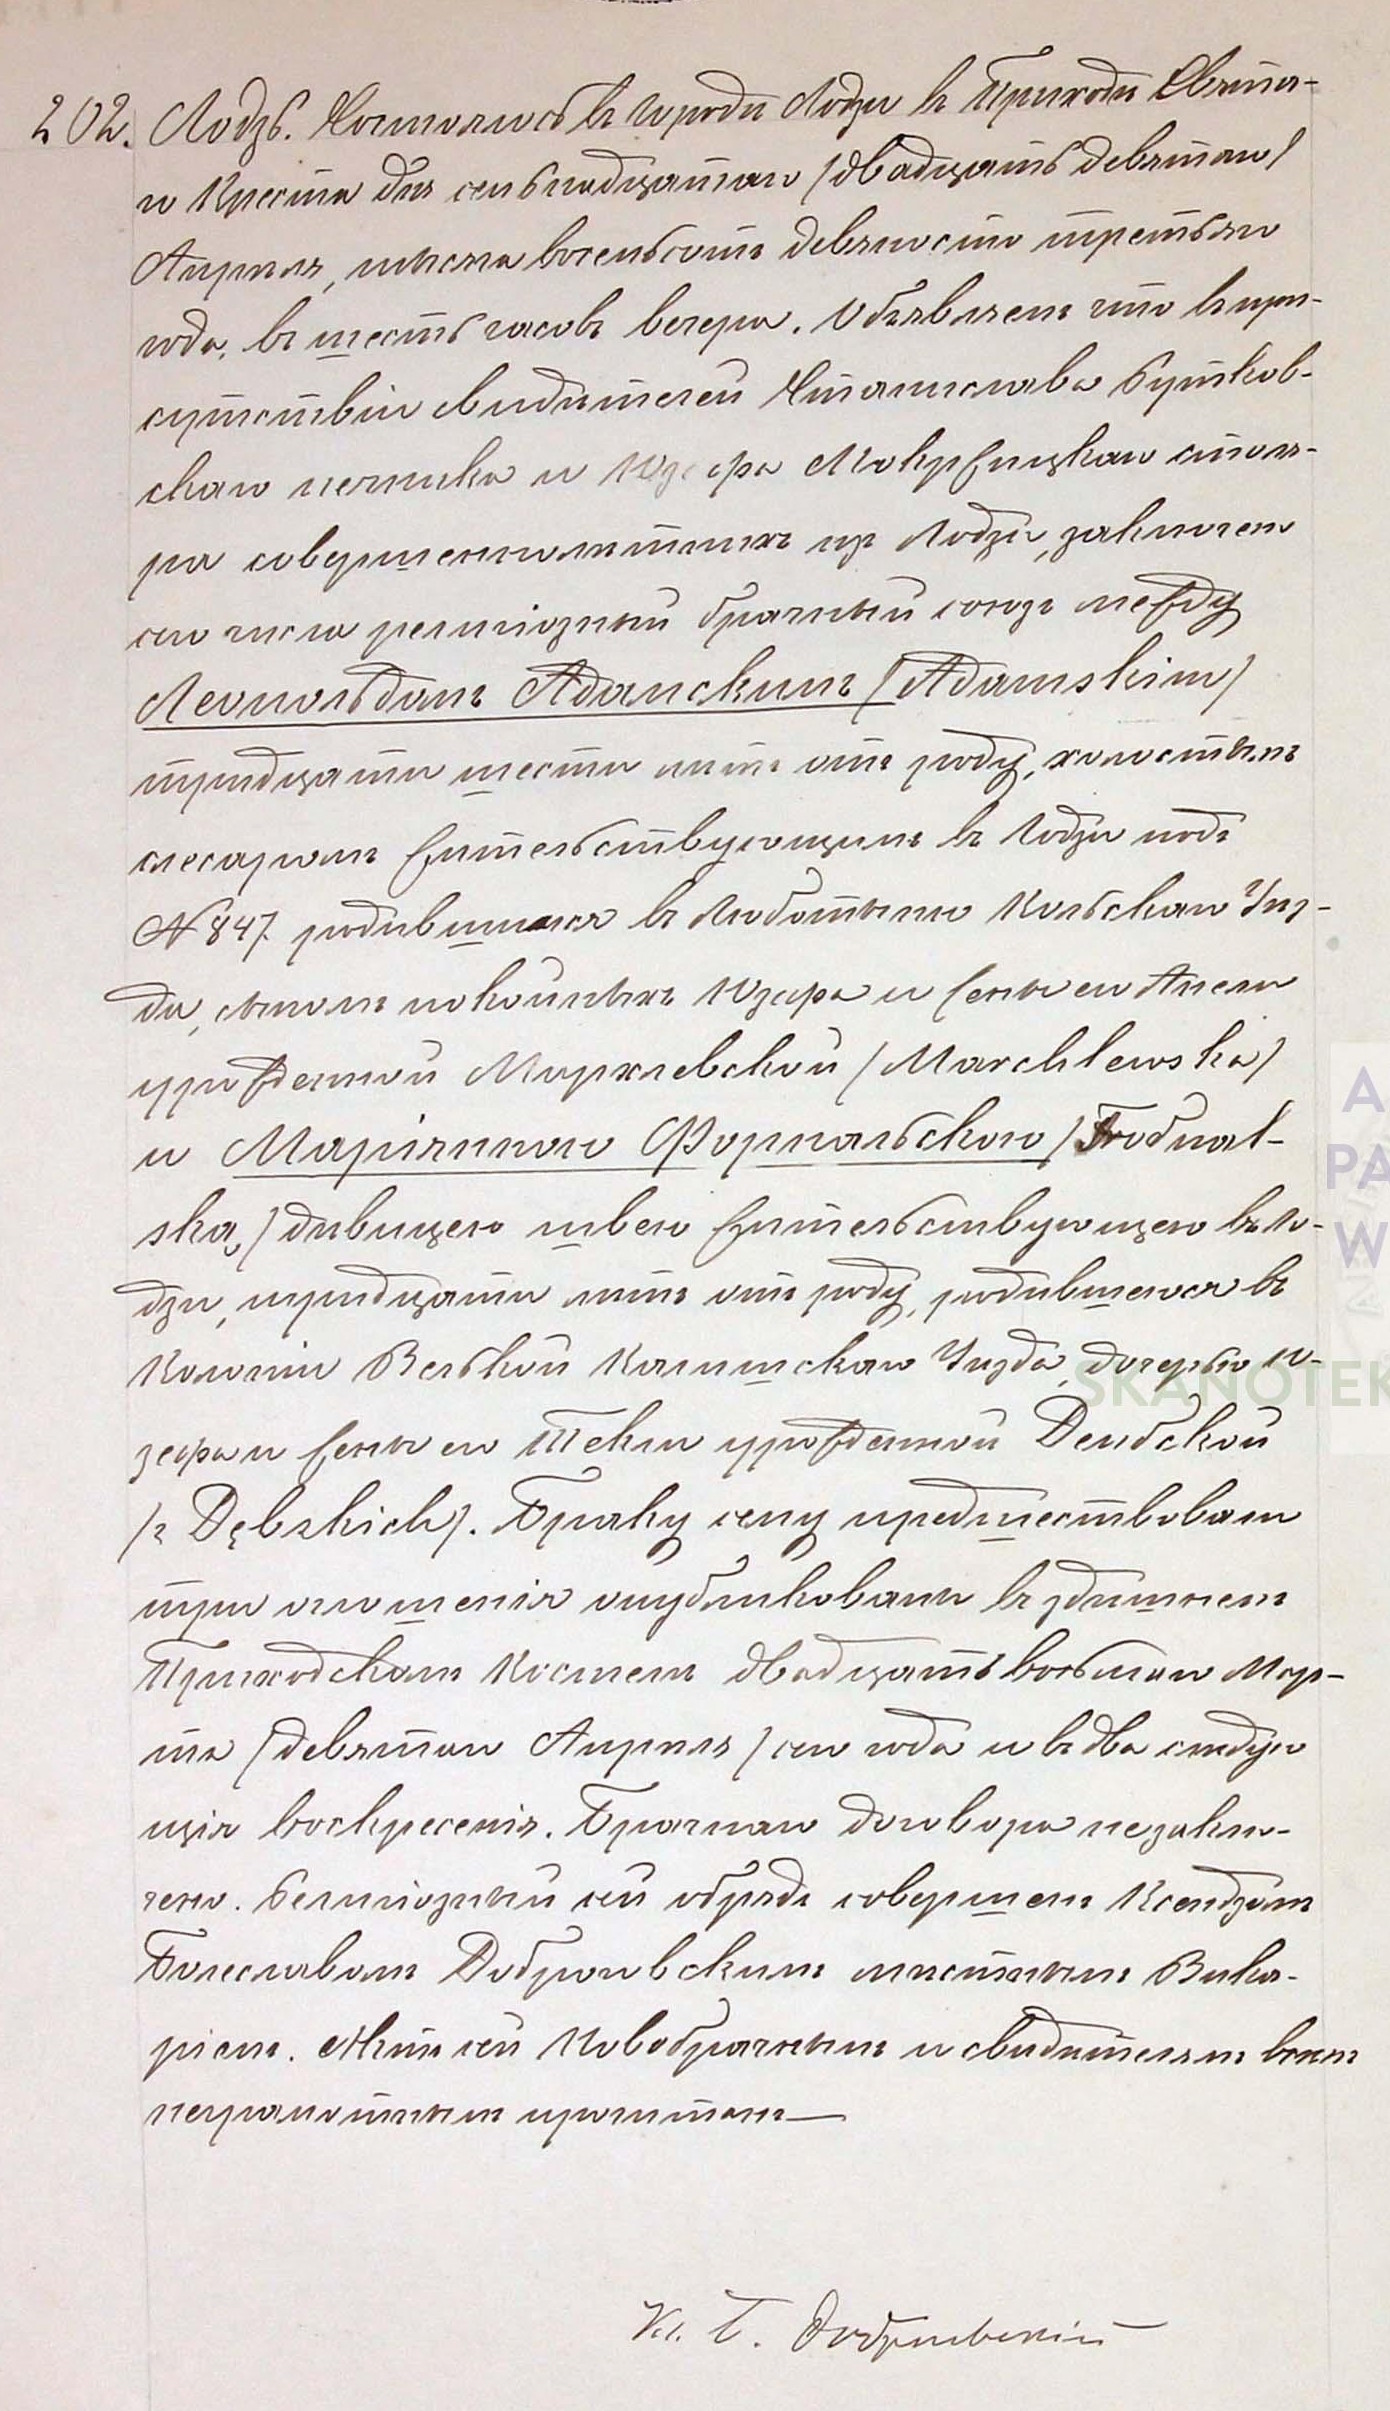 202. Лодзь. Состоялось въ городѣ Лодзи въ Приходѣ Свята-
го Креста дня семьнадцатаго /двадцать девятаго/
Апрѣля, тысяча восемьсотъ девяносто третьяго
года, въ шесть часовъ вечера. Объявляемъ что въ при-
сутствіи свидѣтелей Станислава Бутков-
скаго печника и Юзефа Мокржицкаго столя-
ра совершеннолѣтнихъ изъ Лодзи, заключенъ
сего числа религіозный брачный союзъ между
Леопольдомъ Адамскимъ /Adamskim/
тридцати шести лѣтъ отъ роду, холостымъ
слесаремъ жительствующимъ въ Лодзи подъ
№ 847. родившимся въ Люботынѣ Кольскаго Уѣз-
да, сыномъ покойныхъ Юзефа и жены его Анели
урожденной Мархлевской /Marchlewska/
и Маріянною Форнальскою / Fornal-
ską / дѣвицею швею жительствующею въ Ло-
дзи, тридцати лѣтъ отъ роду, родившеюся въ
Колоніи Велькой Калишскаго Уѣзда, дочерью Ю-
зефа и жены его Текли урожденной Дембской
/z Dębskich/. Браку сему предшествовали
три оглашенія опубликованы въ здѣшнемъ
Приходскомъ Костелѣ двадцать восьмаго Мар-
та /девятаго Апрѣля/ сего года и въ два слѣдую
щія воскресенія. Брачнаго договора не заклю-
чено. Религіозный сей обрядъ совершенъ Ксендзомъ
Болеславомъ Добровскимъ мѣстнымъ Вика-
ріемъ. Актъ сей Новобрачнымъ и свидѣтелямъ всѣмъ
неграмотнымъ прочитанъ—
Кс. Б.
SKANOTEK